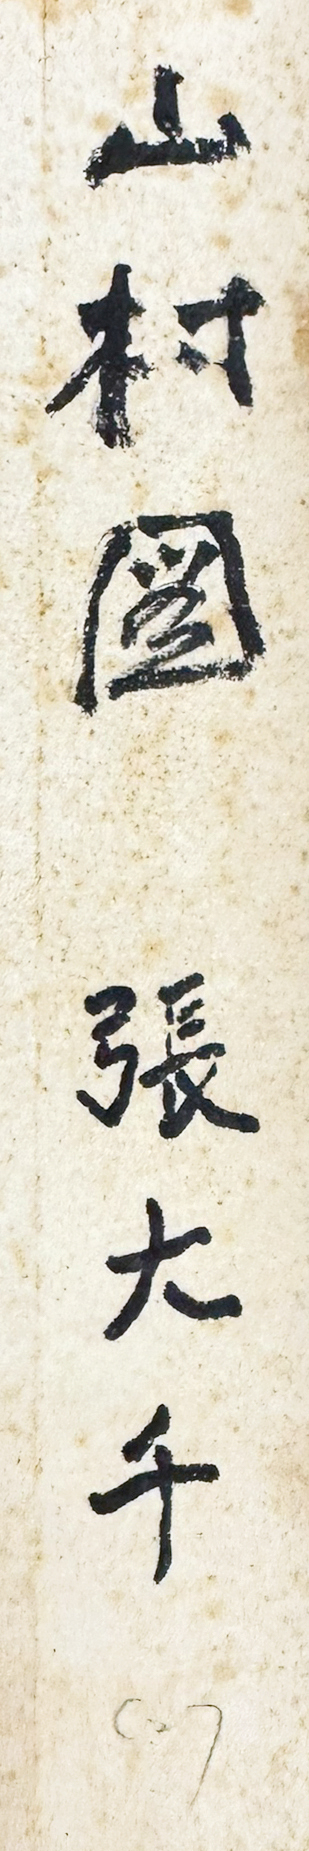 山村圖 張大千